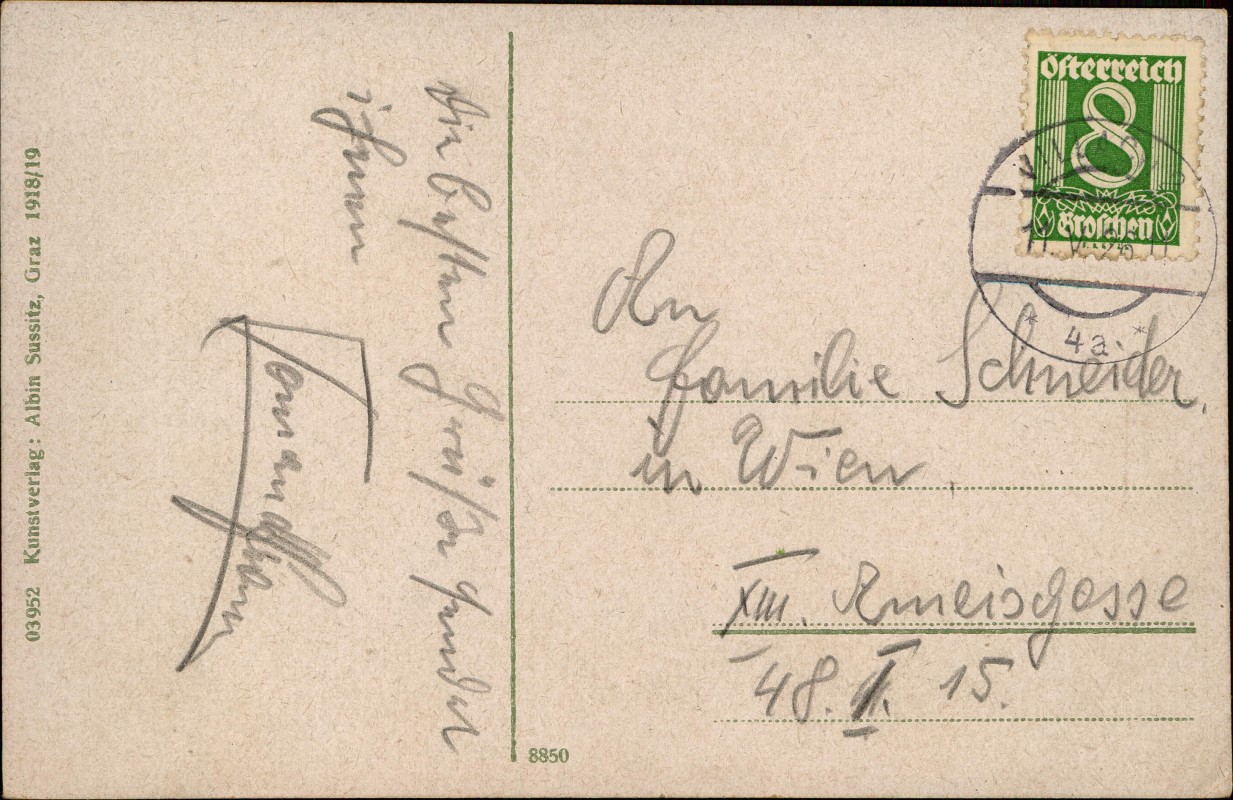 Die besten Grüße sendet
ihnen
03952 Kunstverlag: Albin Sussitz, Graz 1918/19
8850
Österreich
8
Groschen
VILLACH
11. VI. 26 11
* 4a *
An
Familie Schneider,
in Wien,
XIII. Ameisgasse
48. II. 15.